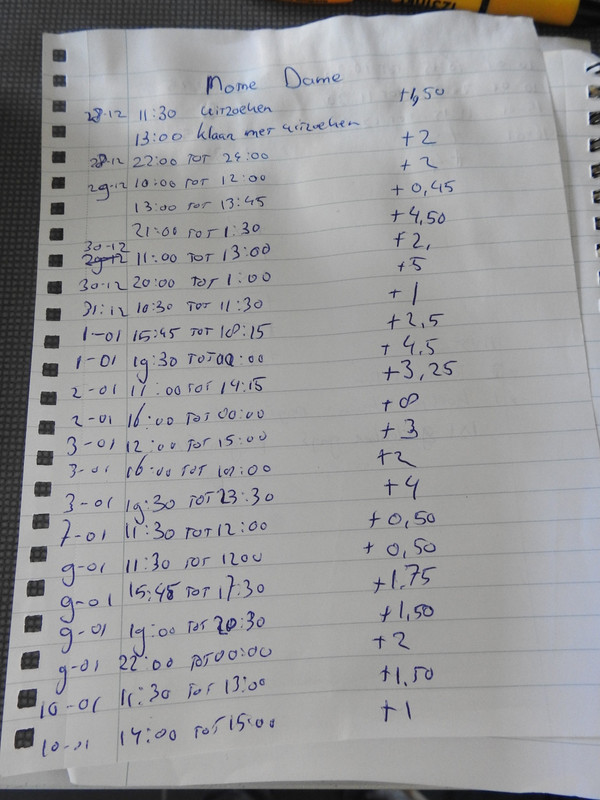 Mome Dame
28-12 11:30 uitzoeken +1,50
13:00 klaar met uitzoeken
28-12 22:00 TOT 24:00 +2
29-12 10:00 TOT 12:00 +2
13:00 TOT 13:45 +0,45
21:00 TOT 1:30 +4,50
30-12 11:00 TOT 13:00 +2,
30-12 20:00 TOT 1:00 +5
31-12 10:30 TOT 11:30 +1
1-01 15:45 TOT 18:15 +2,5
1-01 19:30 TOT 00:00 +4,5
2-01 11:00 TOT 14:15 +3,25
2-01 16:00 TOT 00:00 +8
3-01 12:00 TOT 15:00 +3
3-01 16:00 TOT 18:00 +2
3-01 19:30 TOT 23:30 +4
7-01 11:30 TOT 12:00 +0,50
9-01 11:30 TOT 1200 +0,50
9-01 15:45 TOT 17:30 +1,75
9-01 19:00 TOT 20:30 +1,50
9-01 22:00 TOT 00:00 +2
10-01 11:30 TOT 13:00 +1,50
10-01 14:00 TOT 15:00 +1